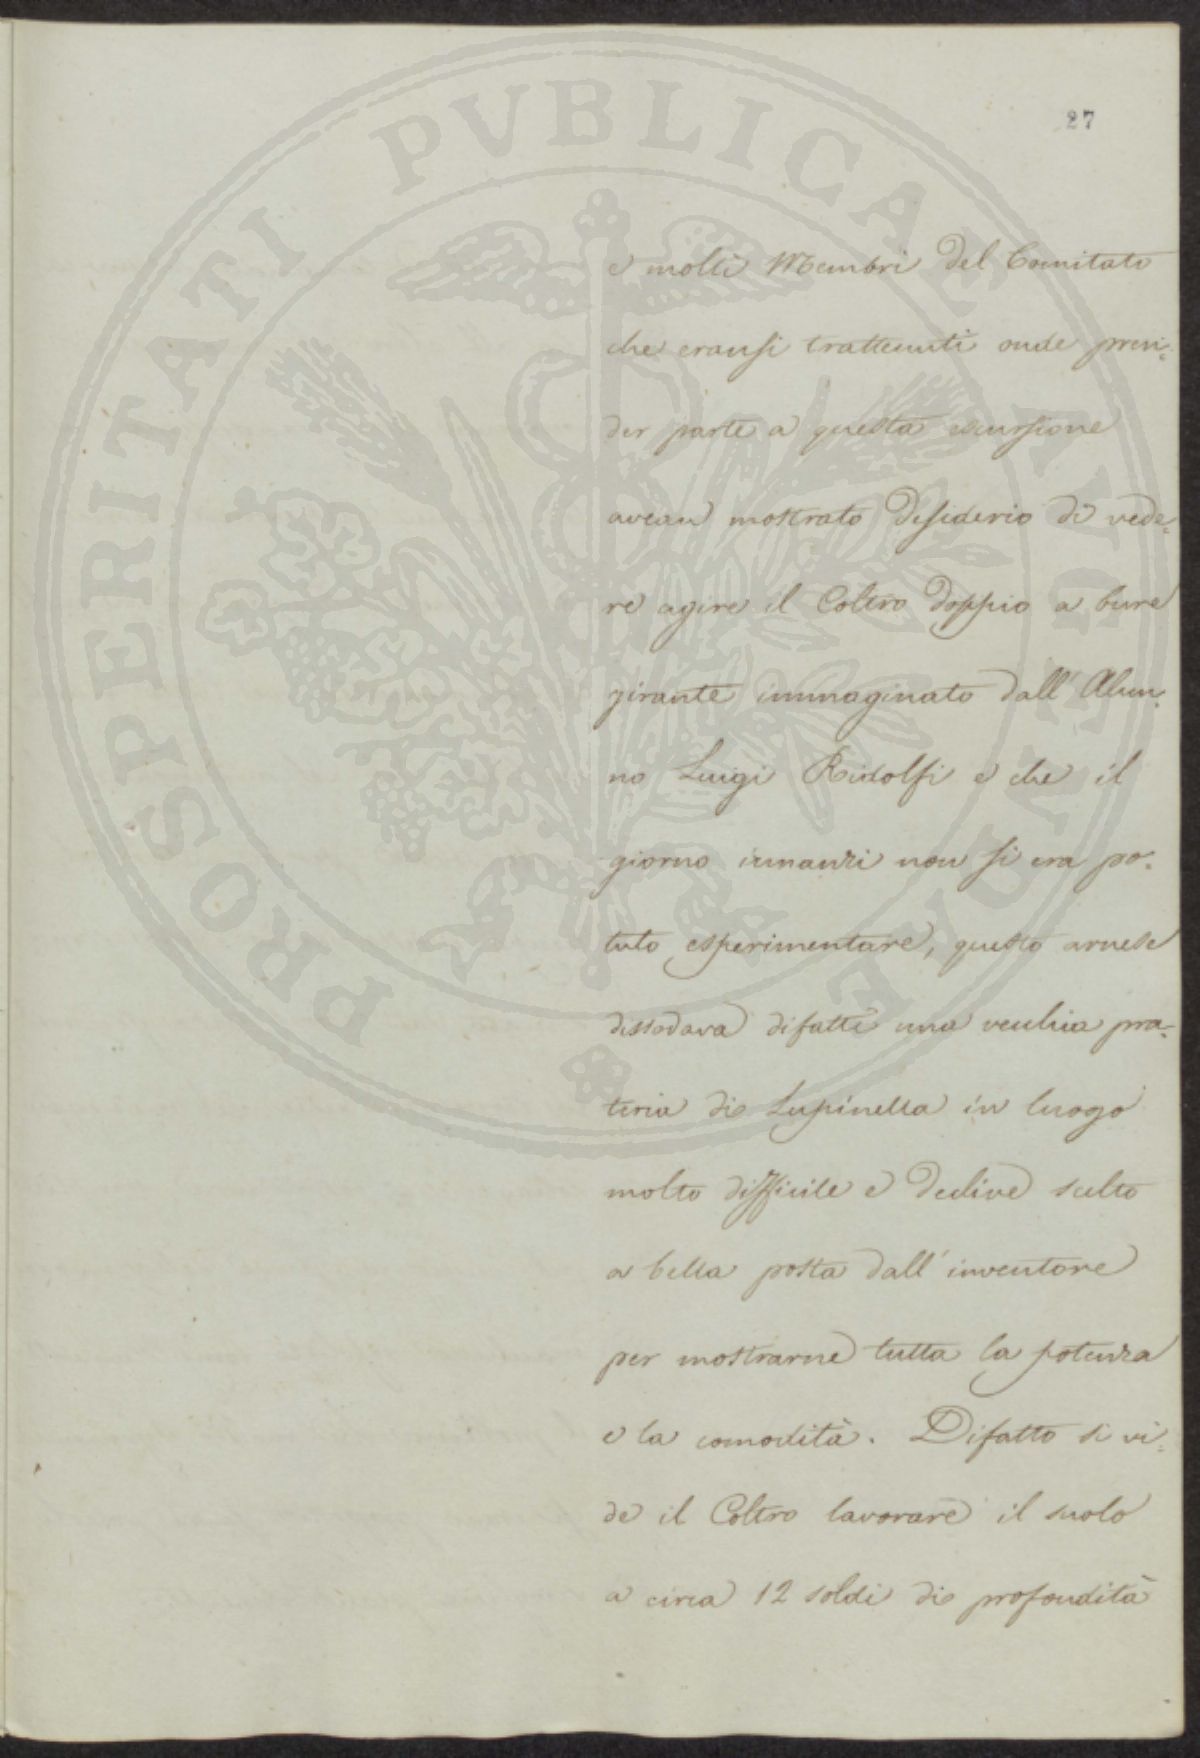 27
PROSPERITATI PVBLICAE AVGENDAE
e molti Membri del Comitato
che eransi trattenuti onde pren-
der parte a questa escursione
avean mostrato desiderio di vede-
re agire il Coltro doppio a bure
girante immaginato dall' Alun-
no Luigi Ridolfi e che il
giorno innanzi non si era po-
tuto esperimentare, questo arnese
dissodava difatti una vecchia pra-
teria di Lupinella in luogo
molto difficile e declive scelto
a bella posta dall' inventore
per mostrarne tutta la potenza
e la comodità. Difatto si vi-
de il Coltro lavorare il suolo
a circa 12 soldi di profondità